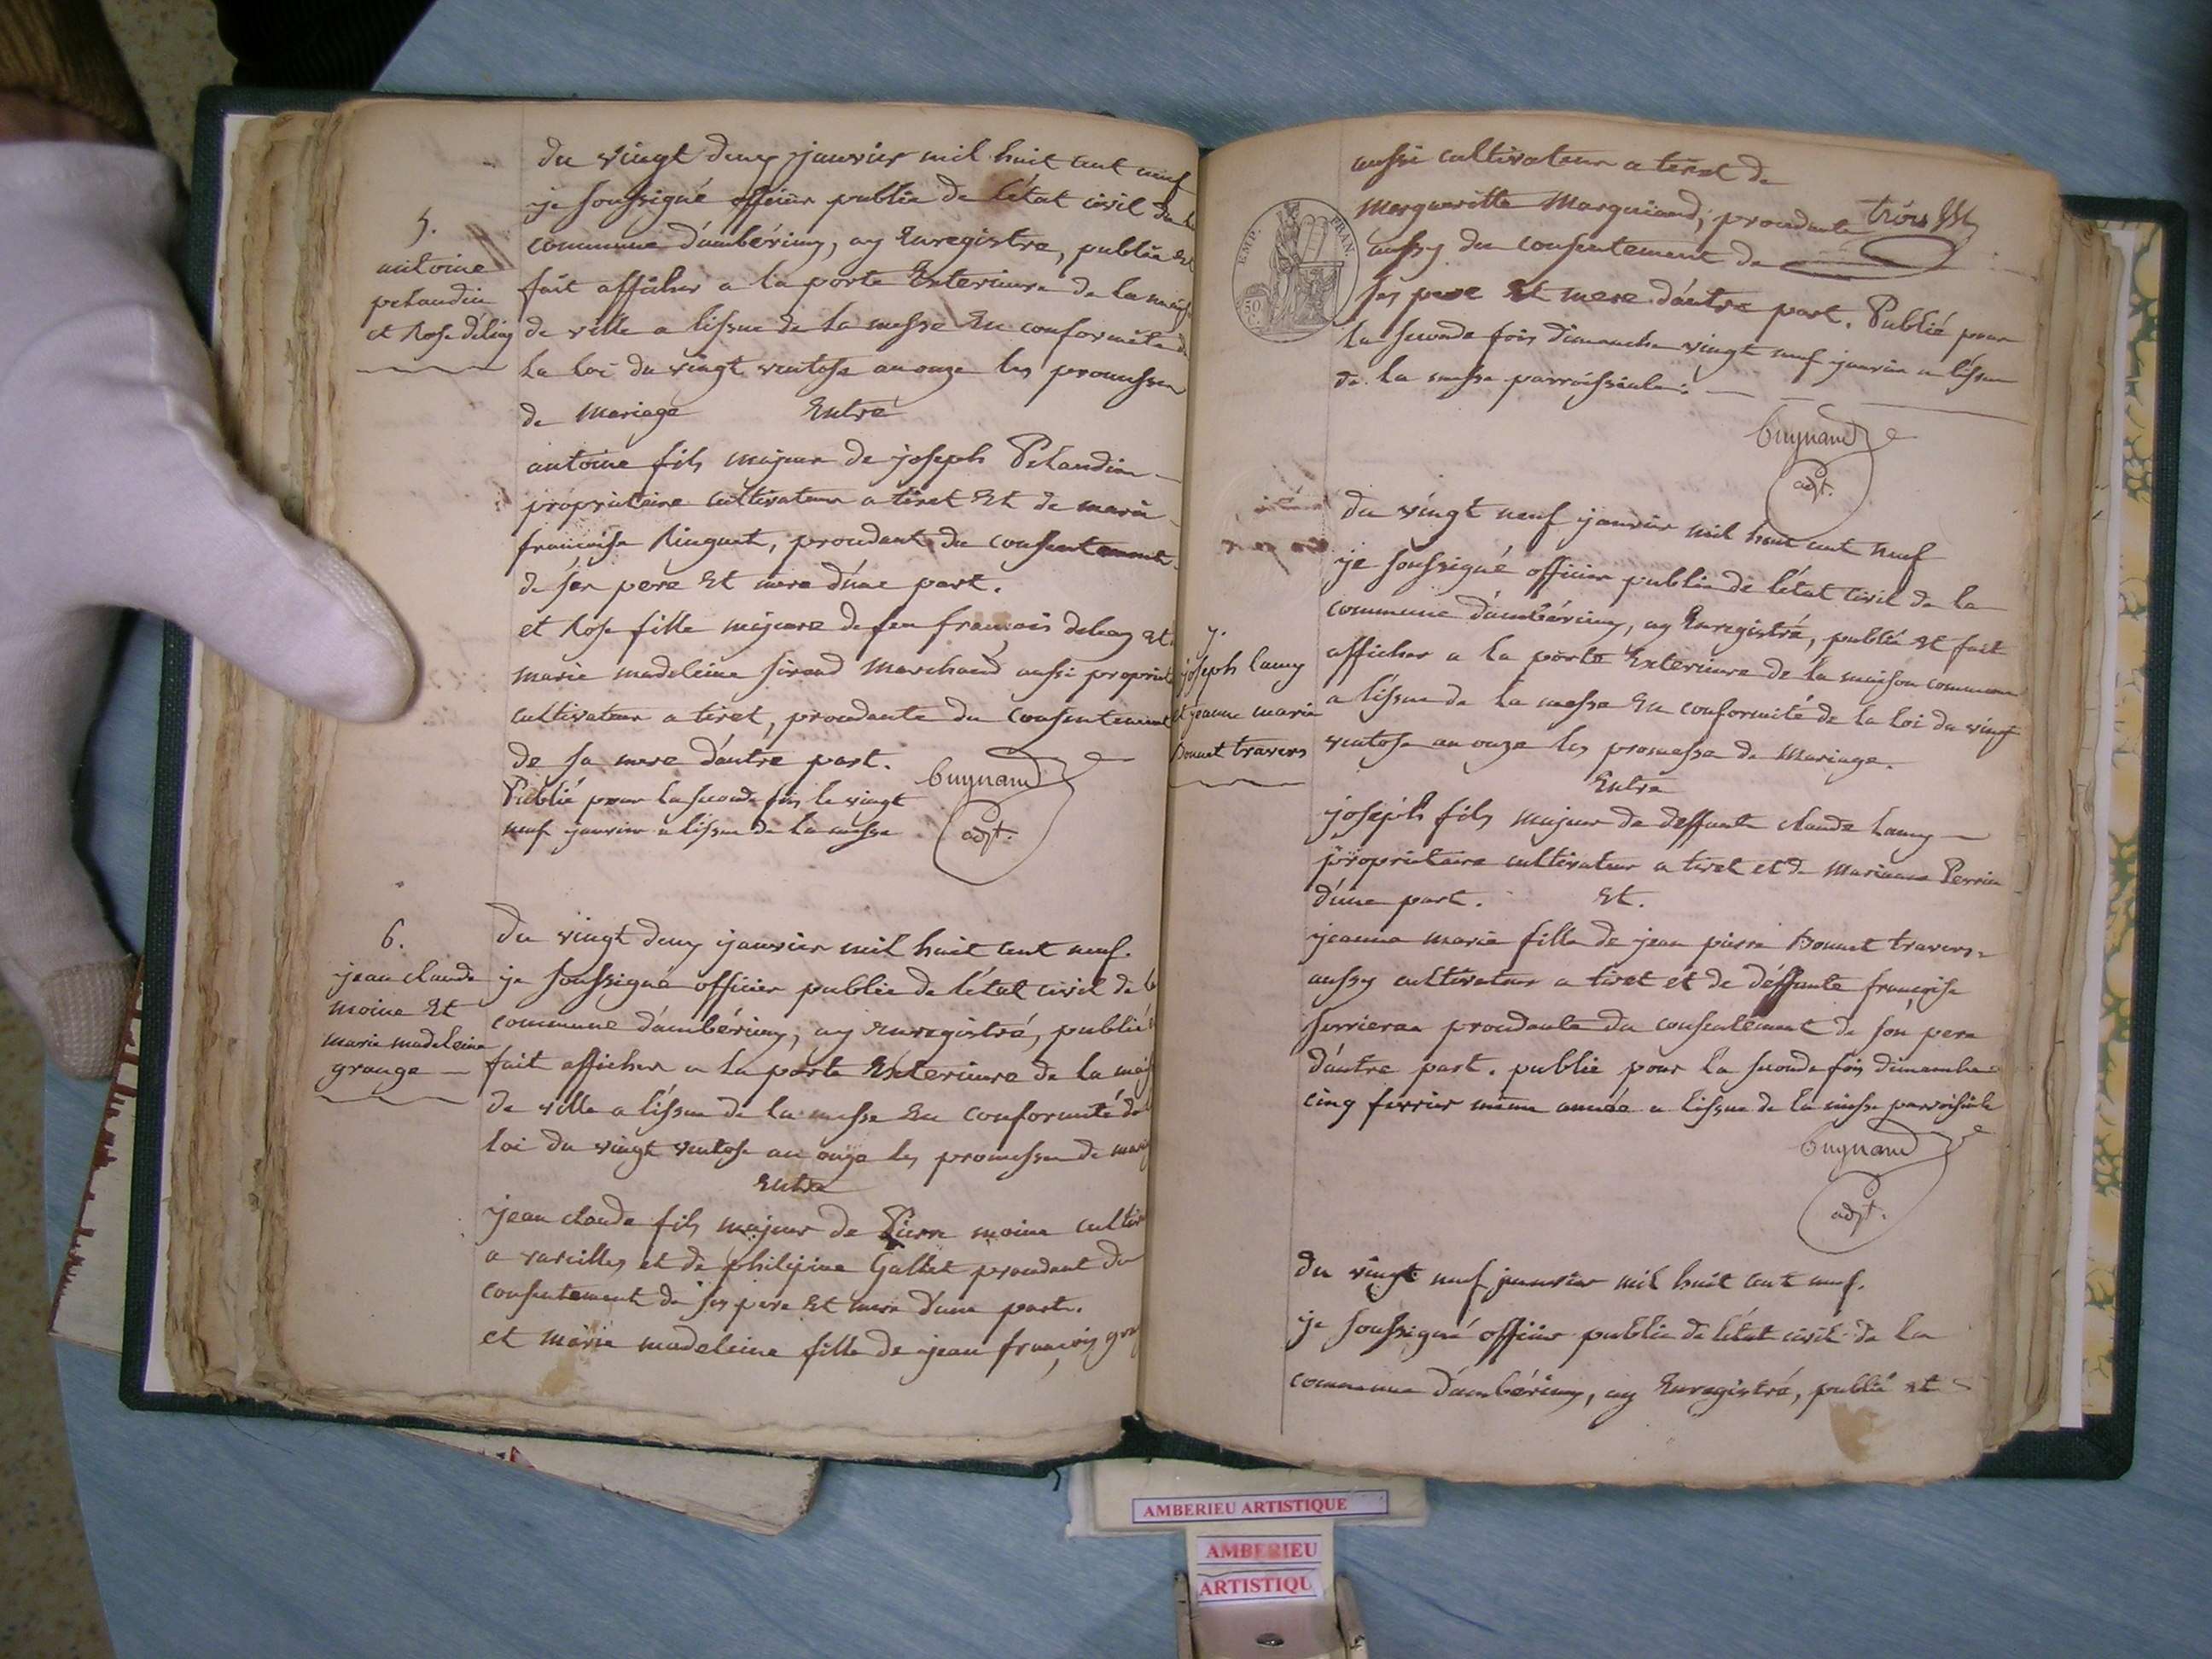 du vingt deux janvier mil huit cent neuf
je soussigné officier public de l'état civil de la
commune d'ambérieux, ay Enregistré, publié et
fait afficher a la porte Exterieure de la maison
de ville a lissue de la messe En conformité de
la loi du vingt ventose an onze les promesses
de mariage Entre
5.
antoine
pelaudin
et Rose déléaz
antoine fils majeur de joseph Pelaudin
propriétaire cultivateur a tiret Et de marie
françoise Ringuet, procedant du consentement
de ses pere Et mere d'une part.
et Rose fille majeure de feu françois deleaz et
marie madeleine sirand Marchand aussi propriet
cultivateur a tiret, procedante du consentement
de sa mere d'autre part.
Publié pour la seconde fois le vingt
neuf janvier a lissue de la messe
Guynand
adjt.
6.
jean claude
moine Et
marie madeleine
grange
du vingt deux janvier mil huit cent neuf.
je soussigné officier public de l'état civil de la
commune d'ambérieux, ay enregistré, publié
fait afficher a la porte Exterieure de la mais
de ville a l'issue de la messe En conformité de
loi du vingt ventose an onze les promesses de mari
Entre
jean claude fils majeur de Pierre moine cultiv
a vareilles et de philipine Gallet procedant du
consentement de ses pere Et mere d'une part.
et marie madeleine fille de jean françois gra
aussi cultivateur a tiret de
Margueritte Marguiand, procedante
trois
aussy du consentement de
ses pere Et mere d'autre part. Publié pour
la seconde fois dimanche vingt neuf janvier a lissue
de la messe parroissiale.
EMP. FRAN.
50 C.
Guynand
adjt.
7.
joseph lamy
et jeanne marie
Bonnet travers
du vingt neuf janvier mil huit cent neuf
je soussigné officier public de l'état civil de la
commune d'ambérieux, ay Enregistré, publié et fait
afficher a la porte Exterieure de la maison commune
a l'issue de la messe En conformité de la loi du vingt
ventose an onze les promesse de Mariage.
Entre
joseph fils majeur de deffunt claude lamy
propriétaire cultivateur a tiret et de Marianne Perrin
d'une part. Et.
jeanne marie fille de jean pierre Bonnet travers
aussy cultivateur a tiret et de deffunte françoise
procedante du consentement de son pere
d'autre part. publié pour la seconde fois dimanche
cinq fevrier même année a lissue de la messe parroissiale
Guynand
adjt.
du vingt neuf janvier mil huit cent neuf.
je soussigné officier public de l'état civil de la
commune d'ambérieux, ay Enregistré, publié et
AMBERIEU ARTISTIQUE
AMBERIEU
ARTISTIQU